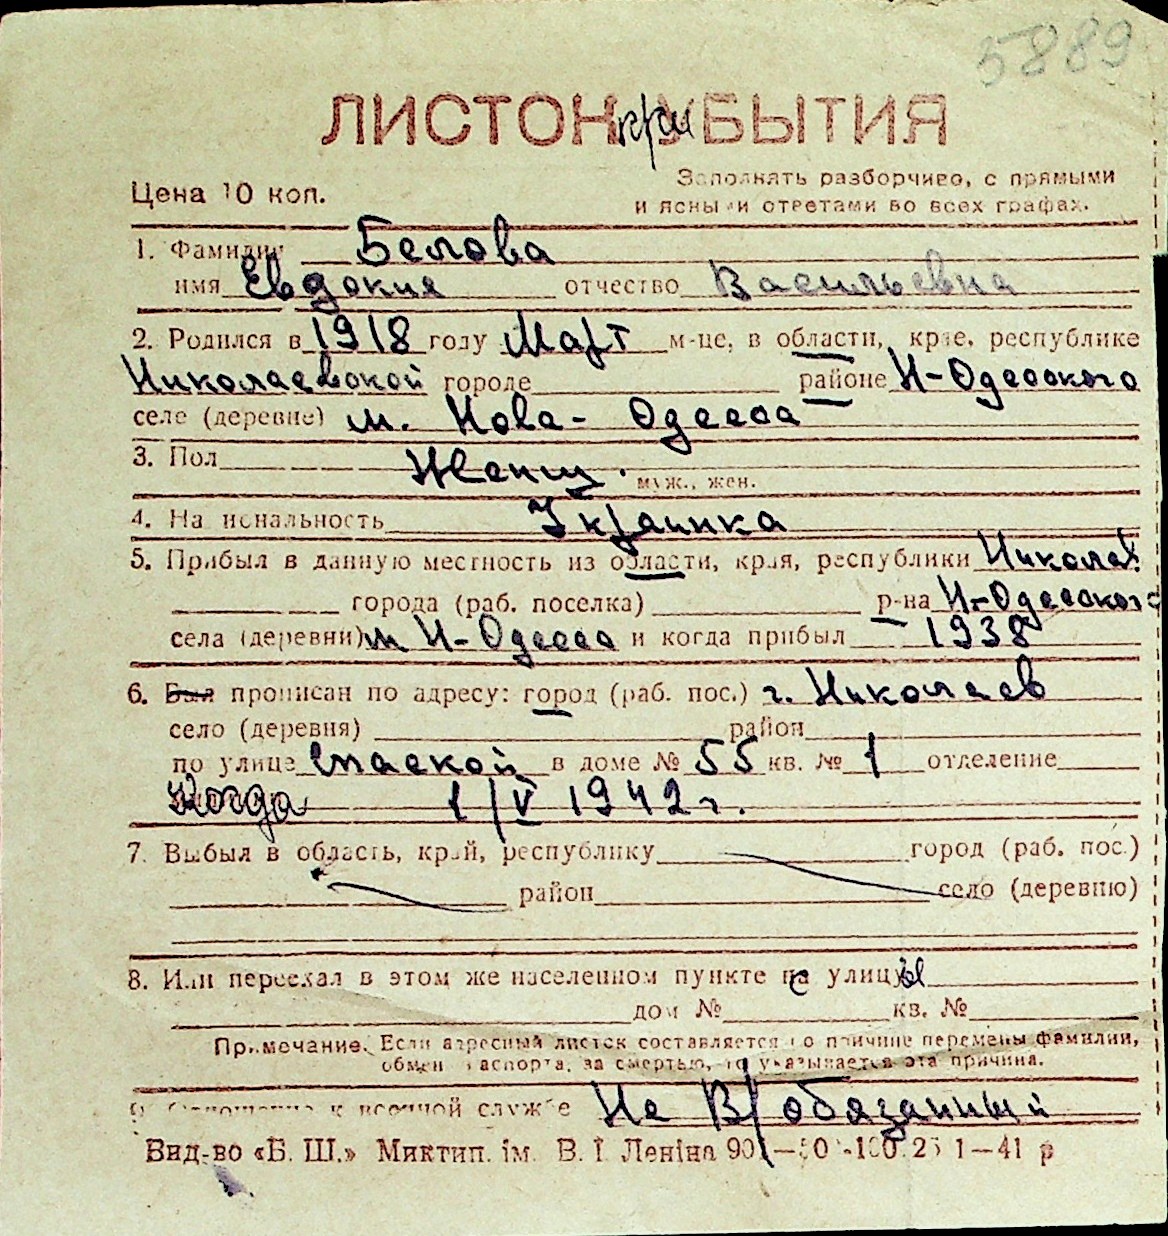 5889
ЛИСТОК при УБЫТИЯ
Цена 10 коп.
Заполнять разборчиво, с прямыми
и ясными ответами во всех графах.
1. Фамилия Белова
имя Евдокия отчество Васильевна
2. Родился в 1918 году Март м-це, в области, крае, республике
Николаевской городе районе Н-Одесского
селе (деревне) м. Нова-Одесса
3. Пол Женщ. муж., жен.
4. Национальность Украинка
5. Прибыл в данную местность из области, края, республики Никола
города (раб. поселка) р-на Н-Одесского
села (деревни) м Н-Одесса и когда прибыл 1938
6. Был прописан по адресу: город (раб. пос.) г. Николаев
село (деревня) район
по улице Спаской в доме № 55 кв. № 1 отделение
Когда 1/V 1942 г.
7. Выбыл в область, край, республику город (раб. пос.)
район село (деревню)
8. Или переехал в этом же населенном пункте с улицы
дом № кв. №
Примечание. Если адресный листок составляется по причине перемены фамилии,
обмен паспорта, за смертью, то указывается эта причина.
9. Отношение к военной службе Не В/обязанный
Вид-во «Б. Ш.» Миктип. ім. В. І. Леніна 1—41 р